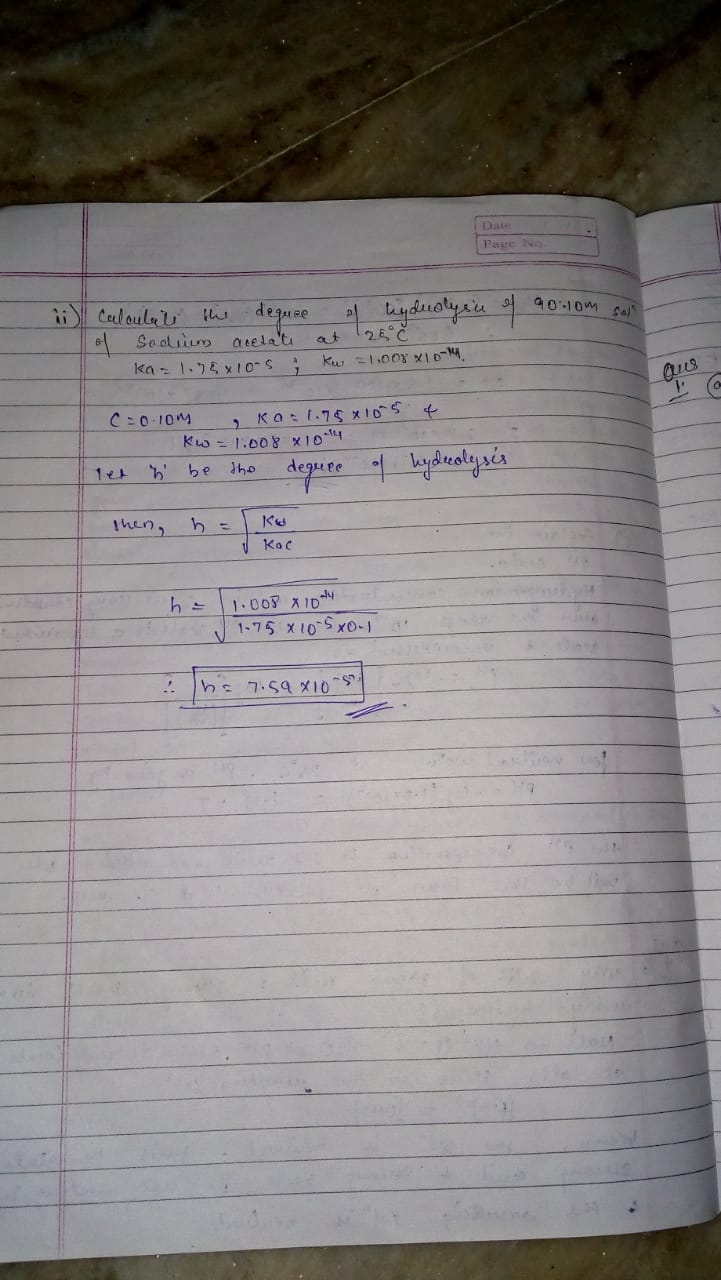 Date
Page No
ii) Calculate the degree of hydrolysis of a 0.10M solⁿ
of Sodium acetate at 25°C
Ka = 1.75 x 10-5 ; Kw = 1.008 x 10-14.
C = 0.10M , Ka = 1.75 x 10-5 &
Kw = 1.008 x 10-14
let 'h' be the degree of hydrolysis
then, h = √ Kw
KaC
h = √ 1.008 x 10-14
1.75 x 10-5 x 0.1
∴ h = 7.59 x 10-5
Ans
1.